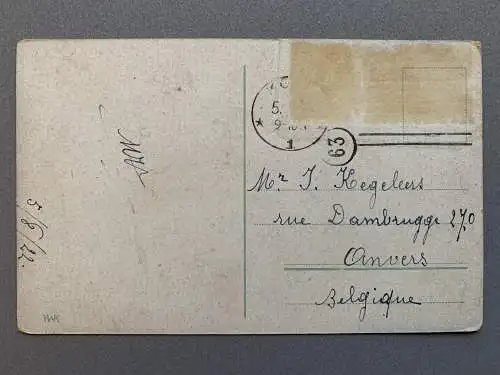 5.
9-10
*
1
63
Mr J. Kegeleers
rue Dambrugge 270
Anvers
Belgique
5/8/22.